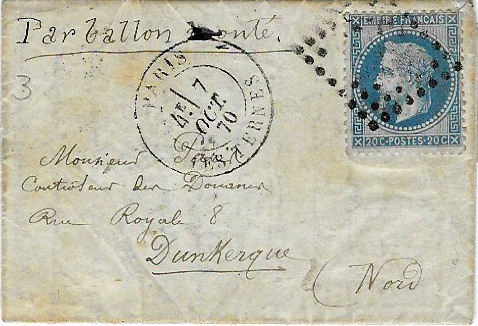 Par ballon monté.
EMPIRE FRANÇAIS
20C·POSTES·20C
PARIS
4E/ 7
OCT.
70
3
Monsieur
Controleur des Douanes
Rue Royale 8
Dunkerque
(Nord)